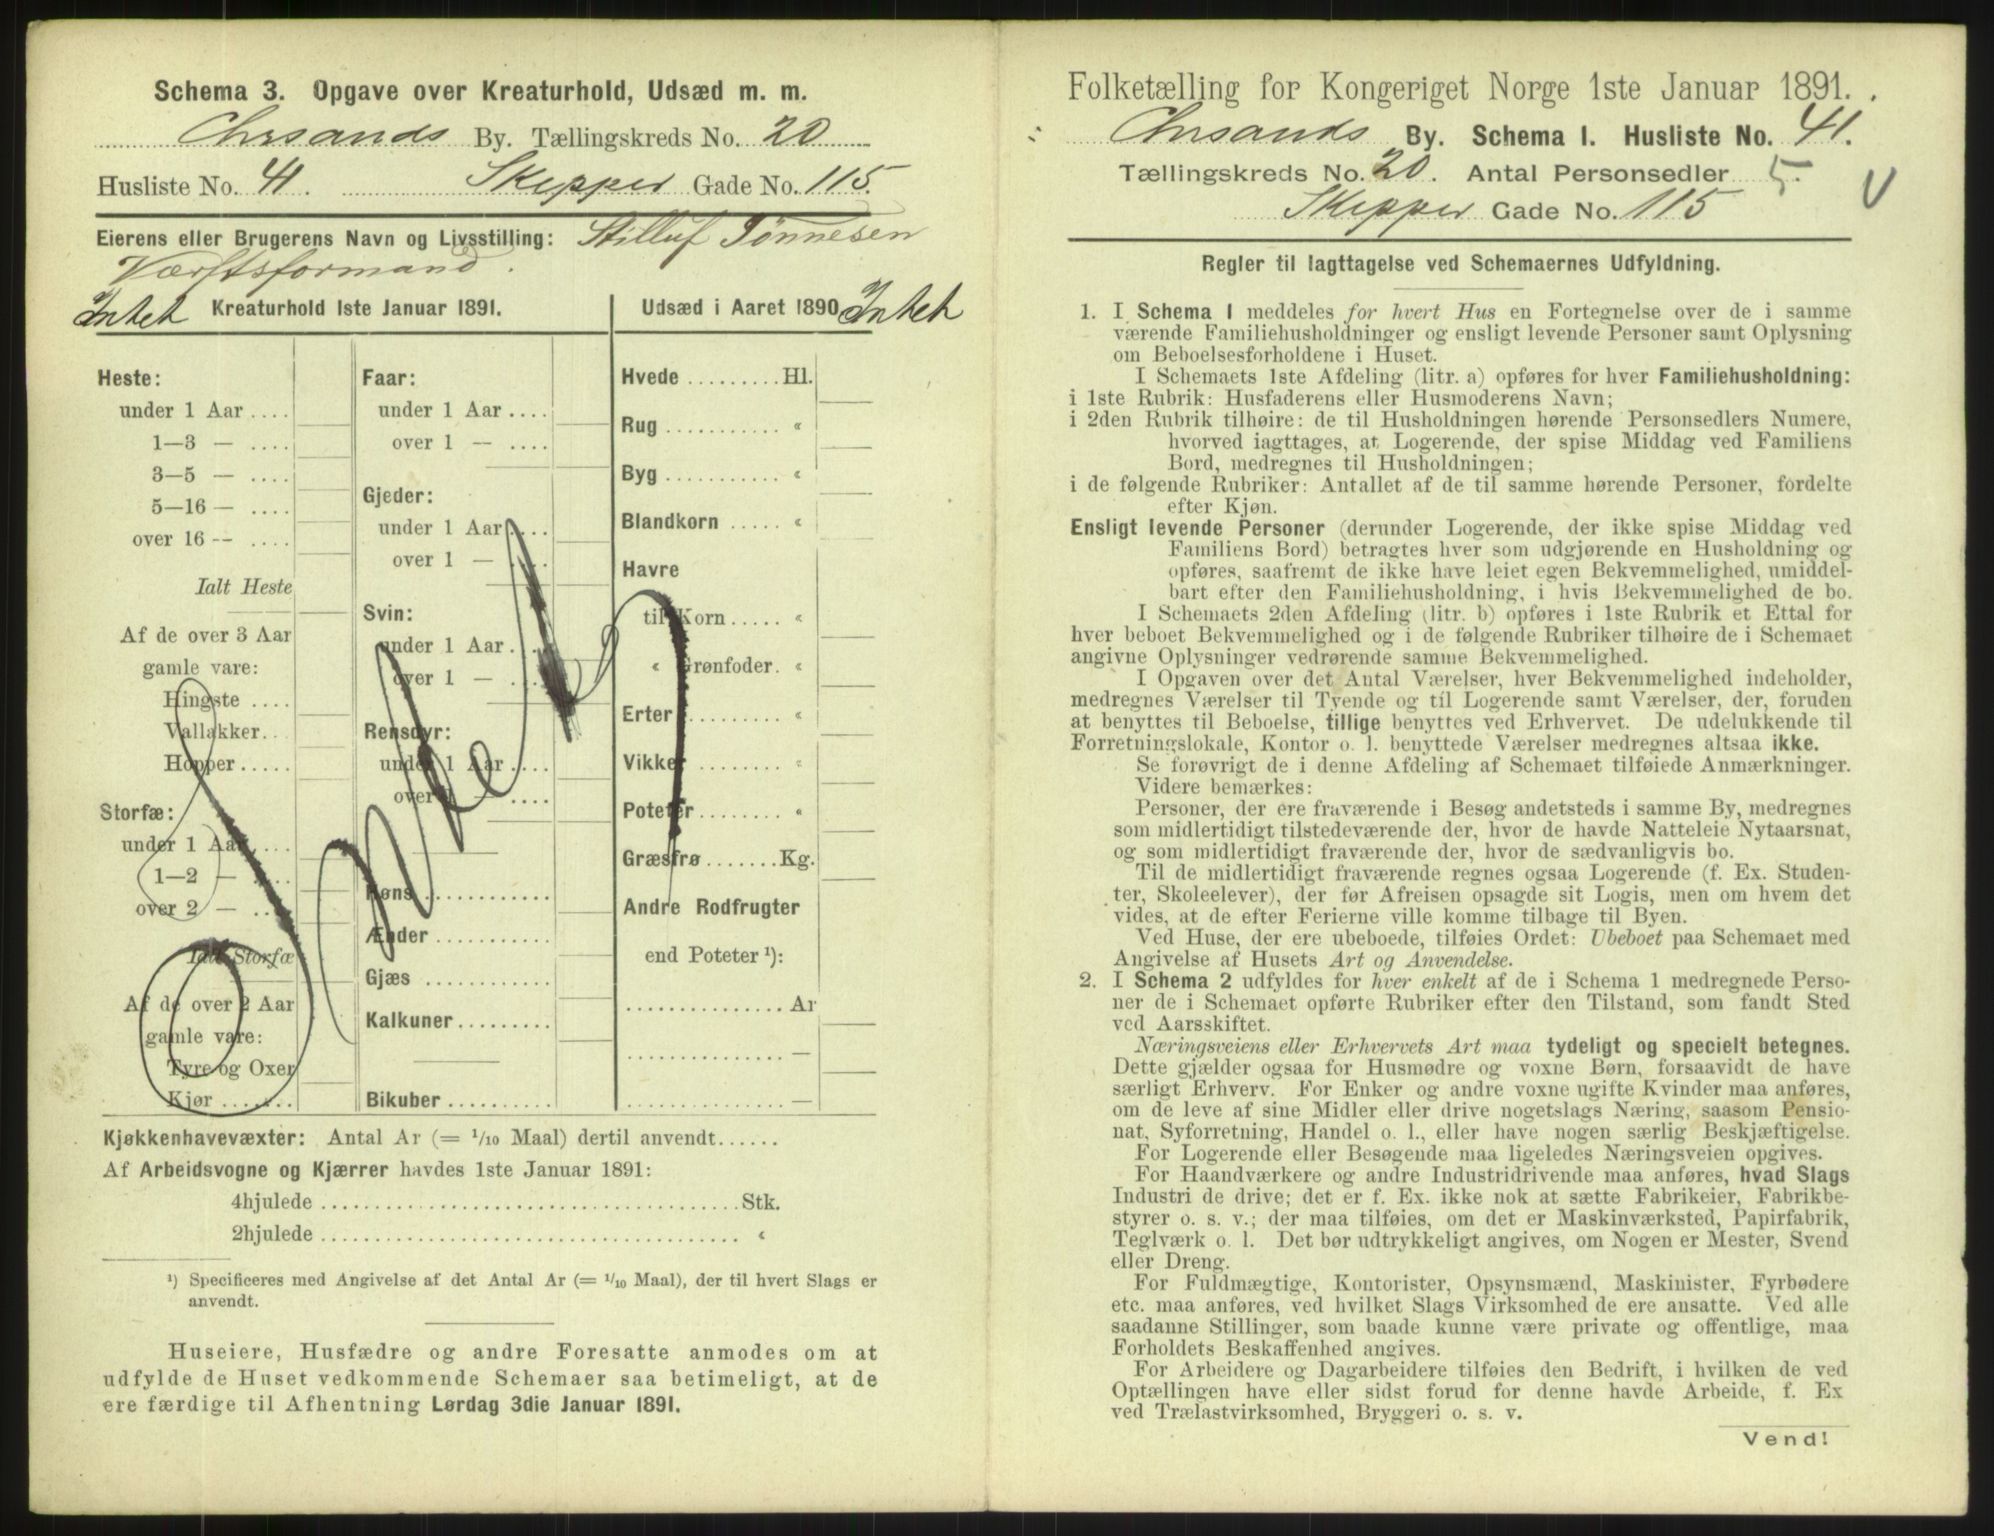 Schema 3. Opgave over Kreaturhold, Udsæd m. m.
Chrsands By. Tællingskreds No. 20
Husliste No. 41. Skepper Gade No. 115.
Eierens eller Brugerens Navn og Livsstilling: Stilluf Tønnesen
Værftsformand.
Intet Kreaturhold 1ste Januar 1891.
Udsæd i Aaret 1890 Intet
Heste:
under 1 Aar....
1—3 — ....
3—5 — ....
5—16 — ....
over 16 -- ....
Ialt Heste
Af de over 3 Aar
gamle vare:
Hingste ....
Vallakker..
Hopper.....
Storfæ:
under 1 Aar....
1—2 — ....
over 2 — ....
Ialt Storfæ
Af de over 2 Aar
gamle vare:
Tyre og Oxer
Kjør.......
Faar:
under 1 Aar....
over 1 — ....
Gjeder:
under 1 Aar....
over 1 — ....
Svin:
under 1 Aar....
over 1 — ....
Rensdyr:
under 1 Aar....
over 1 — ....
Høns............
Ænder...........
Gjæs............
Kalkuner.........
Bikuber..........
Hvede.........Hl.
Rug........... «
Byg........... «
Blandkorn..... «
Havre
til Korn..... «
« Grønfoder. «
Erter......... «
Vikker........ «
Poteter........ «
Græsfrø.......Kg.
Andre Rodfrugter
end Poteter ¹):
...............Ar
............... —
............... —
Kjøkkenhavevæxter: Antal Ar (= 1/10 Maal) dertil anvendt......
Af Arbeidsvogne og Kjærrer havdes 1ste Januar 1891:
4hjulede.....................................Stk.
2hjulede..................................... «
¹) Specificeres med Angivelse af det Antal Ar (= 1/10 Maal), der til hvert Slags er
anvendt.
Huseiere, Husfædre og andre Foresatte anmodes om at
udfylde de Huset vedkommende Schemaer saa betimeligt, at de
ere færdige til Afhentning Lørdag 3die Januar 1891.
Folketælling for Kongeriget Norge 1ste Januar 1891.
Chrsands By. Schema I. Husliste No. 41.
Tællingskreds No. 20. Antal Personsedler 5.
Skepper Gade No. 115
Regler til Iagttagelse ved Schemaernes Udfyldning.
1. I Schema 1 meddeles for hvert Hus en Fortegnelse over de i samme
værende Familiehusholdninger og ensligt levende Personer samt Oplysning
om Beboelsesforholdene i Huset.
I Schemaets 1ste Afdeling (litr. a) opføres for hver Familiehusholdning:
i 1ste Rubrik: Husfaderens eller Husmoderens Navn;
i 2den Rubrik tilhøire: de til Husholdningen hørende Personsedlers Numere,
hvorved iagttages, at Logerende, der spise Middag ved Familiens
Bord, medregnes til Husholdningen;
i de følgende Rubriker: Antallet af de til samme hørende Personer, fordelte
efter Kjøn.
Ensligt levende Personer (derunder Logerende, der ikke spise Middag ved
Familiens Bord) betragtes hver som udgjørende en Husholdning og
opføres, saafremt de ikke have leiet egen Bekvemmelighed, umiddel-
bart efter den Familiehusholdning, i hvis Bekvemmelighed de bo.
I Schemaets 2den Afdeling (litr. b) opføres i 1ste Rubrik et Ettal for
hver beboet Bekvemmelighed og i de følgende Rubriker tilhøire de i Schemaet
angivne Oplysninger vedrørende samme Bekvemmelighed.
I Opgaven over det Antal Værelser, hver Bekvemmelighed indeholder,
medregnes Værelser til Tyende og til Logerende samt Værelser, der, foruden
at benyttes til Beboelse, tillige benyttes ved Erhvervet. De udelukkende til
Forretningslokale, Kontor o. l. benyttede Værelser medregnes altsaa ikke.
Se forøvrigt de i denne Afdeling af Schemaet tilføiede Anmærkninger.
Videre bemærkes:
Personer, der ere fraværende i Besøg andetsteds i samme By, medregnes
som midlertidigt tilstedeværende der, hvor de havde Natteleie Nytaarsnat,
og som midlertidigt fraværende der, hvor de sædvanligvis bo.
Til de midlertidigt fraværende regnes ogsaa Logerende (f. Ex. Studen-
ter, Skoleelever), der før Afreisen opsagde sit Logis, men om hvem det
vides, at de efter Ferierne ville komme tilbage til Byen.
Ved Huse, der ere ubeboede, tilføies Ordet: Ubeboet paa Schemaet med
Angivelse af Husets Art og Anvendelse.
2. I Schema 2 udfyldes for hver enkelt af de i Schema 1 medregnede Perso-
ner de i Schemaet opførte Rubriker efter den Tilstand, som fandt Sted
ved Aarsskiftet.
Næringsveiens eller Erhvervets Art maa tydeligt og specielt betegnes.
Dette gjælder ogsaa for Husmødre og voxne Børn, forsaavidt de have
særligt Erhverv. For Enker og andre voxne ugifte Kvinder maa anføres,
om de leve af sine Midler eller drive nogetslags Næring, saasom Pensio-
nat, Syforretning, Handel o. l., eller have nogen særlig Beskjæftigelse.
For Logerende eller Besøgende maa ligeledes Næringsveien opgives.
For Haandværkere og andre Industridrivende maa anføres, hvad Slags
Industri de drive; det er f. Ex. ikke nok at sætte Fabrikeier, Fabrikbe-
styrer o. s. v.; der maa tilføies, om det er Maskinværksted, Papirfabrik,
Teglværk o. l. Det bør udtrykkeligt angives, om Nogen er Mester, Svend
eller Dreng.
For Fuldmægtige, Kontorister, Opsynsmænd, Maskinister, Fyrbødere
etc. maa anføres, ved hvilket Slags Virksomhed de ere ansatte. Ved alle
saadanne Stillinger, som baade kunne være private og offentlige, maa
Forholdets Beskaffenhed angives.
For Arbeidere og Dagarbeidere tilføies den Bedrift, i hvilken de ved
Optællingen have eller sidst forud for denne havde Arbeide, f. Ex
ved Trælastvirksomhed, Bryggeri o. s. v.
Vend!